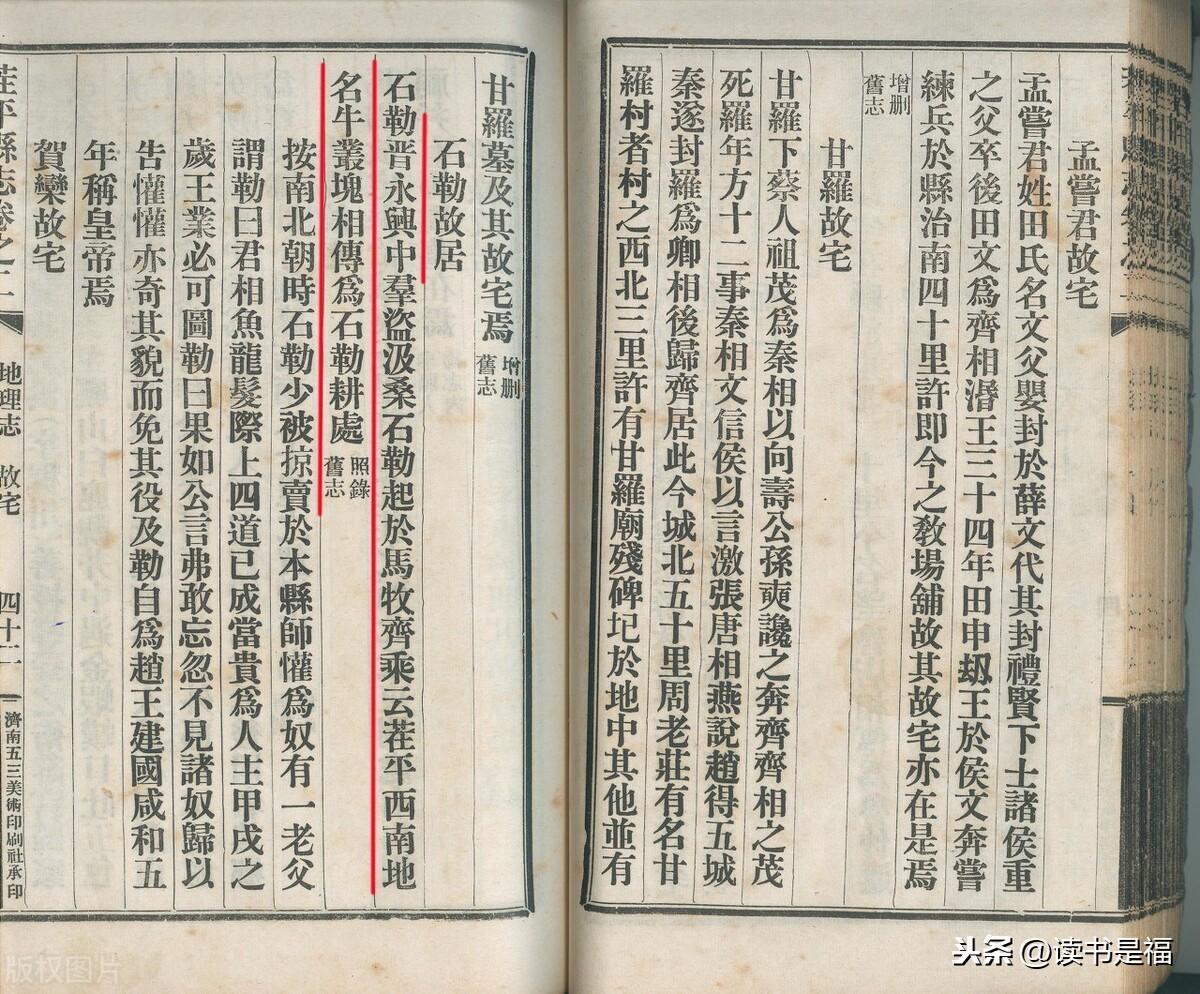 孟嘗君故宅
孟嘗君姓田氏名文父嬰封於薛文代其封禮賢下士諸侯重
之父卒後田文爲齊相湣王三十四年田申刼王於侯文奔嘗
練兵於縣治南四十里許即今之教場舖故其故宅亦在是焉
增刪
舊志
甘羅故宅
甘羅下蔡人祖茂爲秦相以向壽公孫奭讒之奔齊齊相之茂
死羅年方十二事秦相文信侯以言激張唐相燕說趙得五城
秦遂封羅爲卿相後歸齊居此今城北五十里周老莊有名甘
羅村者村之西北三里許有甘羅廟殘碑圮於地中其他並有
甘羅墓及其故宅焉
增刪
舊志
石勒故居
石勒晋永興中羣盜汲桑石勒起於馬牧齊乘云茬平西南地
名牛叢塊相傳爲石勒耕處
照錄
舊志
按南北朝時石勒少被掠賣於本縣師懽爲奴有一老父
謂勒曰君相魚龍髮際上四道已成當貴爲人主甲戌之
歲王業必可圖勒曰果如公言弗敢忘忽不見諸奴歸以
告懽懽亦奇其貌而免其役及勒自爲趙王建國咸和五
年稱皇帝焉
賀欒故宅
茌平縣志卷之二
地理志 故宅
四十二
濟南五三美術印刷社承印
头条 @读书是福
版权图片